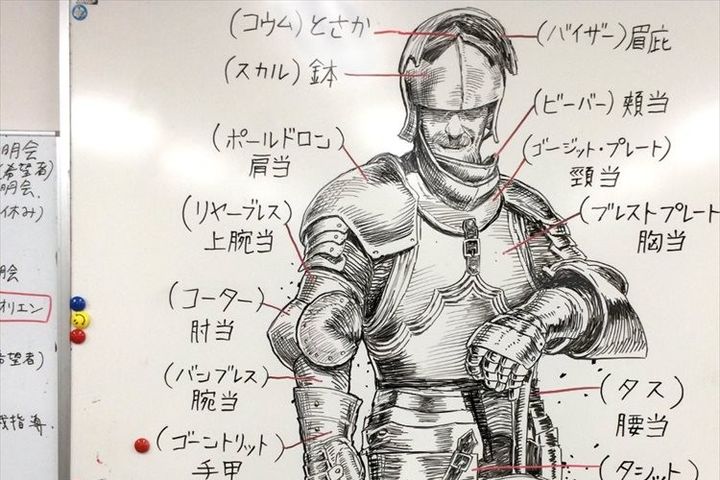 (コウム)とさか
(バイザー)眉庇
(スカル)鉢
(ビーバー)頬当
(ポールドロン)
肩当
(ゴージット・プレート)
頸当
(リヤーブレス)
上腕当
(ブレストプレート
胸当
(コーター)
肘当
(バンブレス)
腕当
(タス)
腰当
(ゴーントリット)
手甲
(タシット)
明会
(希望者)
明会、
休み)
明会
オリエン
希望者)